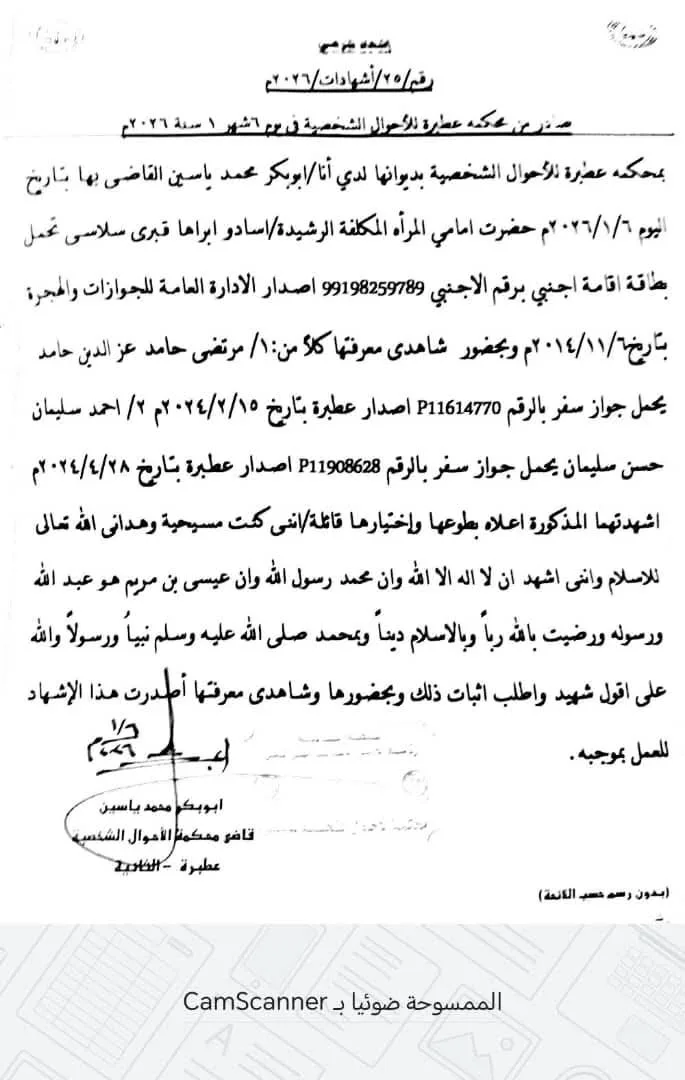 إشهاد شرعي
رقم/٢٥/أشهادات/٢٠٢٦م
صادر من محكمه عطبرة للأحوال الشخصية في يوم ٦ شهر ١ سنة ٢٠٢٦م
بمحكمه عطبرة للأحوال الشخصية بديوانها لدي أنا/ابوبكر محمد ياسين القاضى بها بتاريخ
اليوم ٢٠٢٦/١/٦م حضرت امامي المرأه المكلفة الرشيدة/اسادو ابراها قبرى سلاسى تحمل
بطاقة اقامة اجنبي برقم الاجنبي 99198259789 اصدار الادارة العامة للجوازات والهجرة
بتاريخ٢٠١٤/١١/٦م وبحضور شاهدى معرفتها كلاً من:١/ مرتضى حامد عز الدين حامد
يحمل جواز سفر بالرقم P11614770 اصدار عطبرة بتاريخ ٢٠٢٤/٢/١٥م ٢/ احمد سليمان
حسن سليمان يحمل جواز سفر بالرقم P11908628 اصدار عطبرة بتاريخ ٢٠٢٤/٤/٢٨م
اشهدتهما المذكورة اعلاه بطوعها وإختيارها قائلة/اننى كنت مسيحية وهدانى الله تعالى
للاسلام واننى اشهد ان لا اله الا الله وان محمد رسول الله وان عيسى بن مريم هو عبد الله
ورسوله ورضيت بالله رباً وبالاسلام ديناً وبمحمد صلى الله عليه وسلم نبياُ ورسولاً والله
على اقول شهيد واطلب اثبات ذلك وبحضورها وشاهدى معرفتها أصدرت هذا الإشهاد
للعمل بموجبه.
١/٦
٢٠٢٦م
ابوبكر محمد ياسين
قاضي محكمة الأحوال الشخصية
عطبرة – الثانية
(بدون رسم حسب اللائحة)
الممسوحة ضوئيا بـ CamScanner